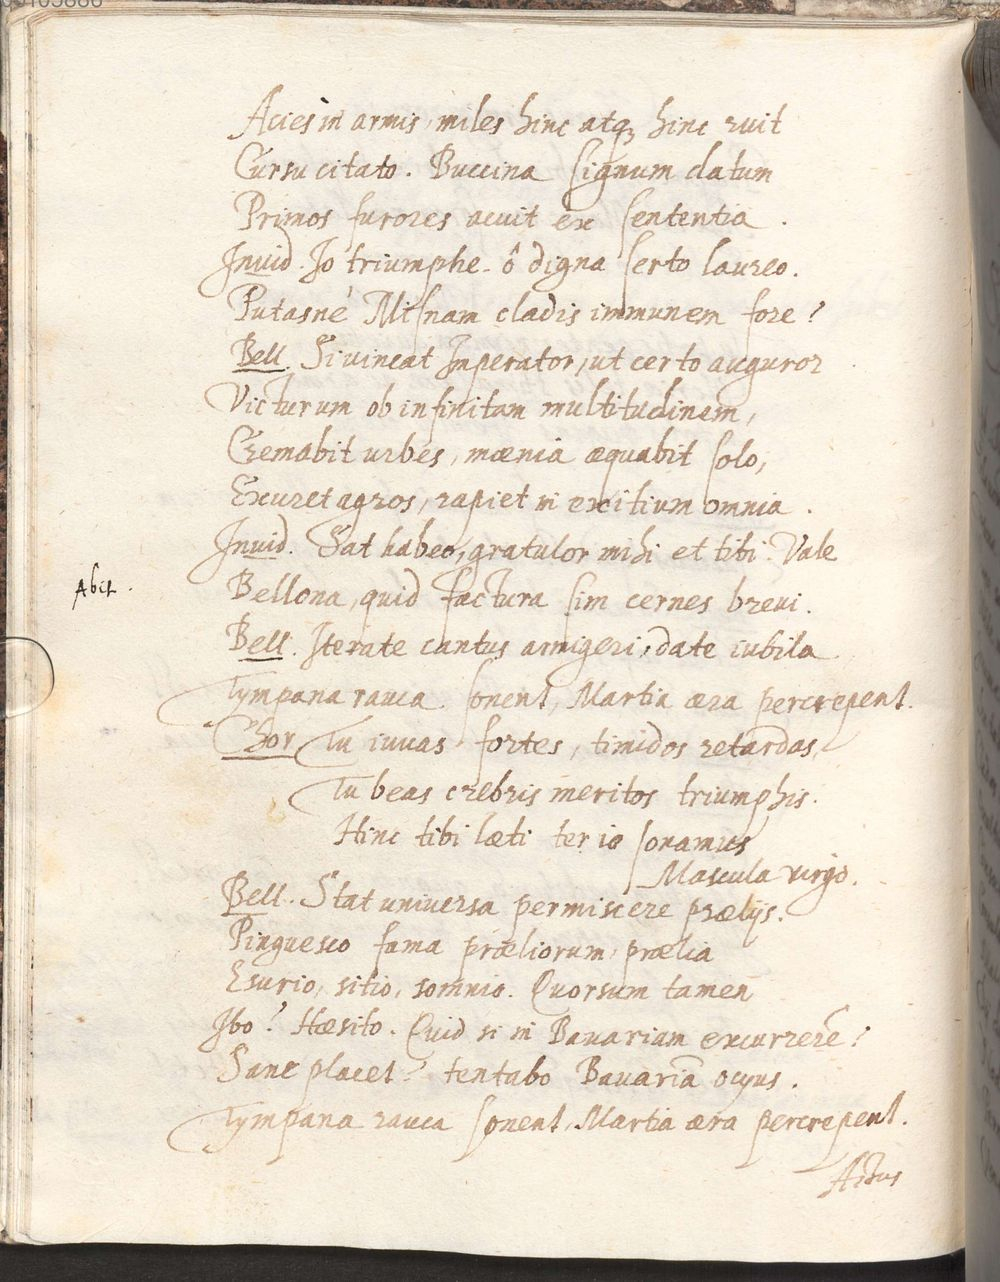 00105886
Acies in armis, miles hinc atq, hinc ruit
Cursu citato. Buccina signum datum
Primos furores acuit ex sententia.
Invid. Io triumphe. ô digna serto laureo.
Putasnè Misnam cladis immunem fore?
Bell. Si vincat Imperator, ut certo auguror
Victurum ob infinitam multitudinem,
Cremabit urbes, mœnia æquabit solo,
Exuret agros, rapiet in exitium omnia.
Invid. Sat habeo, gratulor mihi et tibi. Vale
Abit.
Bellona, quid factura sim cernes brevi.
Bell. Iterate cantus armigeri, date iubila
Tympana rauca sonent, Martia æra percrepent.
Chor. Tu iuvas fortes, timidos retardas,
Tu beas crebris meritos triumphis.
Hinc tibi læti ter io sonamus
Mascula virgo.
Bell. Stat universa permiscere prælijs.
Pinguesco fama præliorum, prælia
Esurio, sitio, somnio. Quorsum tamen
Ibo? Hæsito. Quid si in Bavariam excurrerē?
Sane placet? tentabo Bavariā ocyus.
Tympana rauca sonent, Martia æra percrepent.
Actus